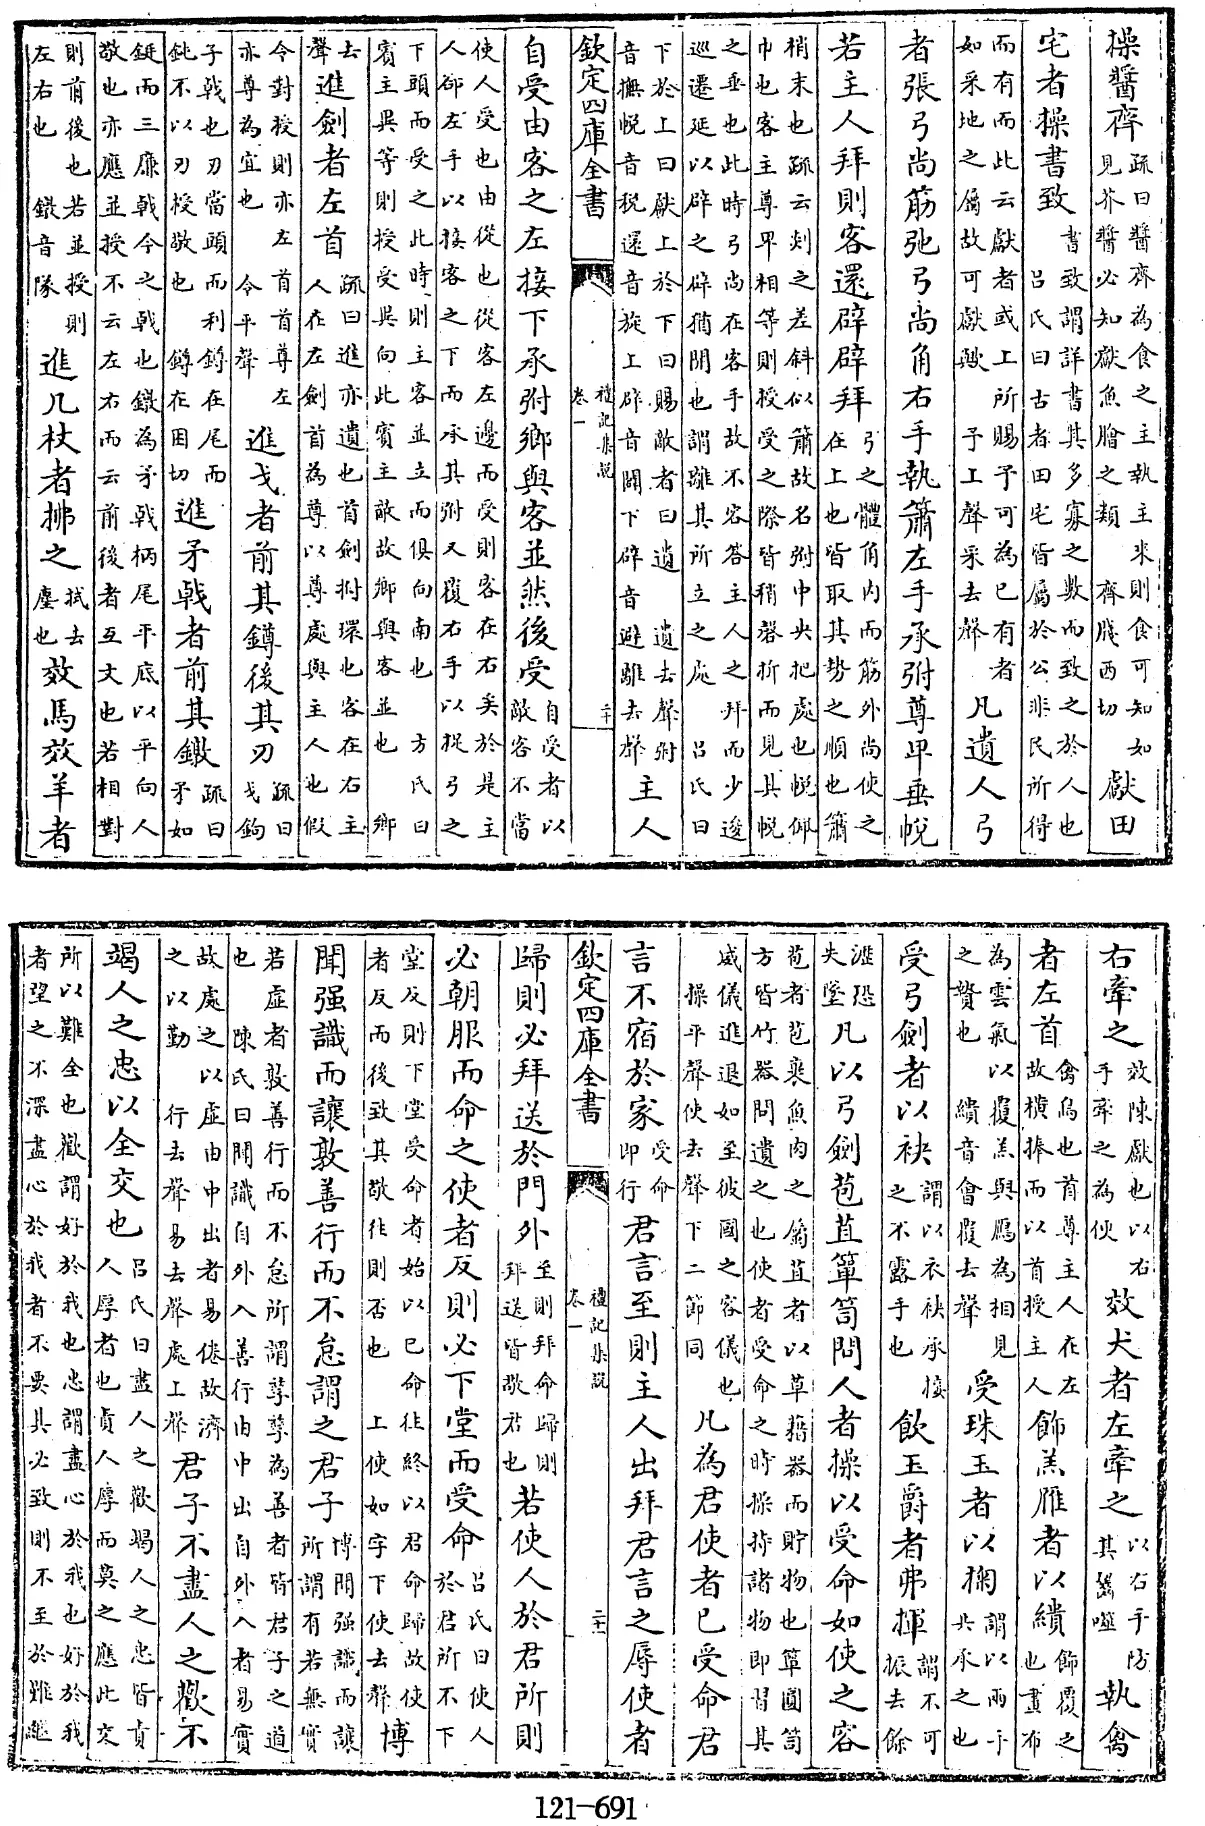 操醬齊疏曰醬齊為食之主執主来則食可知如見芥醬必知獻魚膾之類 齊牋西切獻田
宅者操書致書致謂詳書其多寡之數而致之於人也呂氏曰古者田宅皆屬於公非民所得
而有而此云獻者或上所賜予可為已有者如采地之屬故可獻歟 予上聲采去聲凡遺人弓
者張弓尚筋弛弓尚角右手執簫左手承弣尊卑垂帨
若主人拜則客還辟辟拜弓之體角内而筋外尚使之在上也皆取其勢之順也簫
梢末也疏云剡之差斜似簫故名弣中央把處也帨佩巾也客主尊卑相等則授受之際皆稍磬折而見其帨
之垂也此時弓尚在客手故不容答主人之拜而少逡巡遷延以辟之辟猶開也謂離其所立之處 呂氏曰
下於上曰獻上於下曰賜敵者曰遺 遺去聲弣音撫帨音税還音旋上辟音闢下辟音避離去聲主人
欽定四庫全書 禮記集說 卷一 二十
自受由客之左接下承弣鄉與客並然後受自受者以敵客不當
使人受也由從也從客左邊而受則客在右矣於是主人郤左手以接客之下而承其弣又覆右手以捉弓之
下頭而受之此時則主客並立而俱向南也 方氏曰賓主異等則授受異向此賓主敵故鄉與客並也 鄉
去聲進劍者左首疏曰進亦遺也首劍拊環也客在右主人在左劍首為尊以尊處與主人也假
令對授則亦左首首尊左亦尊為宜也 令平聲進戈者前其鐏後其刃疏曰戈鉤
子戟也刃當頭而利鐏在尾而鈍不以刃授敬也 鐏在困切進矛戟者前其鐓疏曰矛如
鋋而三廉戟今之戟也鐓為矛戟柄尾平底以平向人敬也亦應並授不云左右而云前後者互文也若相對
則前後也若並授則左右也 鐓音隊進几杖者拂之拭去塵也效馬效羊者
右牽之效陳獻也以右手牽之為便效犬者左牽之以右手防其齧噬執禽
者左首禽鳥也首尊主人在左故橫捧而以首授主人飾羔雁者以繢飾覆之也畫布
為雲氣以覆羔與鴈為相見之贄也 繢音會覆去聲受珠玉者以掬謂以兩手共承之也
受弓劍者以袂謂以衣袂承接之不露手也飲玉爵者弗揮謂不可振去餘
瀝恐失墜凡以弓劍苞苴簞笥問人者操以受命如使之容
苞者苞裹魚肉之屬苴者以草藉器而貯物也簞圓笥方皆竹器問遺之也使者受命之時操持諸物即習其
威儀進退如至彼國之容儀也 操平聲使去聲下二節同凡為君使者已受命君
言不宿於家受命即行君言至則主人出拜君言之辱使者
欽定四庫全書 禮記集說 卷一 二十一
歸則必拜送於門外至則拜命歸則拜送皆敬君也若使人於君所則
必朝服而命之使者反則必下堂而受命呂氏曰使人於君所不下
堂反則下堂受命者始以已命往終以君命歸故使者反而後致其敬往則否也 上使如字下使去聲博
聞强識而讓敦善行而不怠謂之君子博聞强識而讓所謂有若無實
若虛者敦善行而不怠所謂孳孳為善者皆君子之道也 陳氏曰聞識自外入善行由中出自外入者易實
故處之以虛由中出者易倦故濟之以勤 行去聲易去聲處上聲君子不盡人之歡不
竭人之忠以全交也呂氏曰盡人之歡竭人之忠皆責人厚者也責人厚而莫之應此交
所以難全也歡謂好於我也忠謂盡心於我也好於我者望之不深盡心於我者不要其必致則不至於難繼
121-691